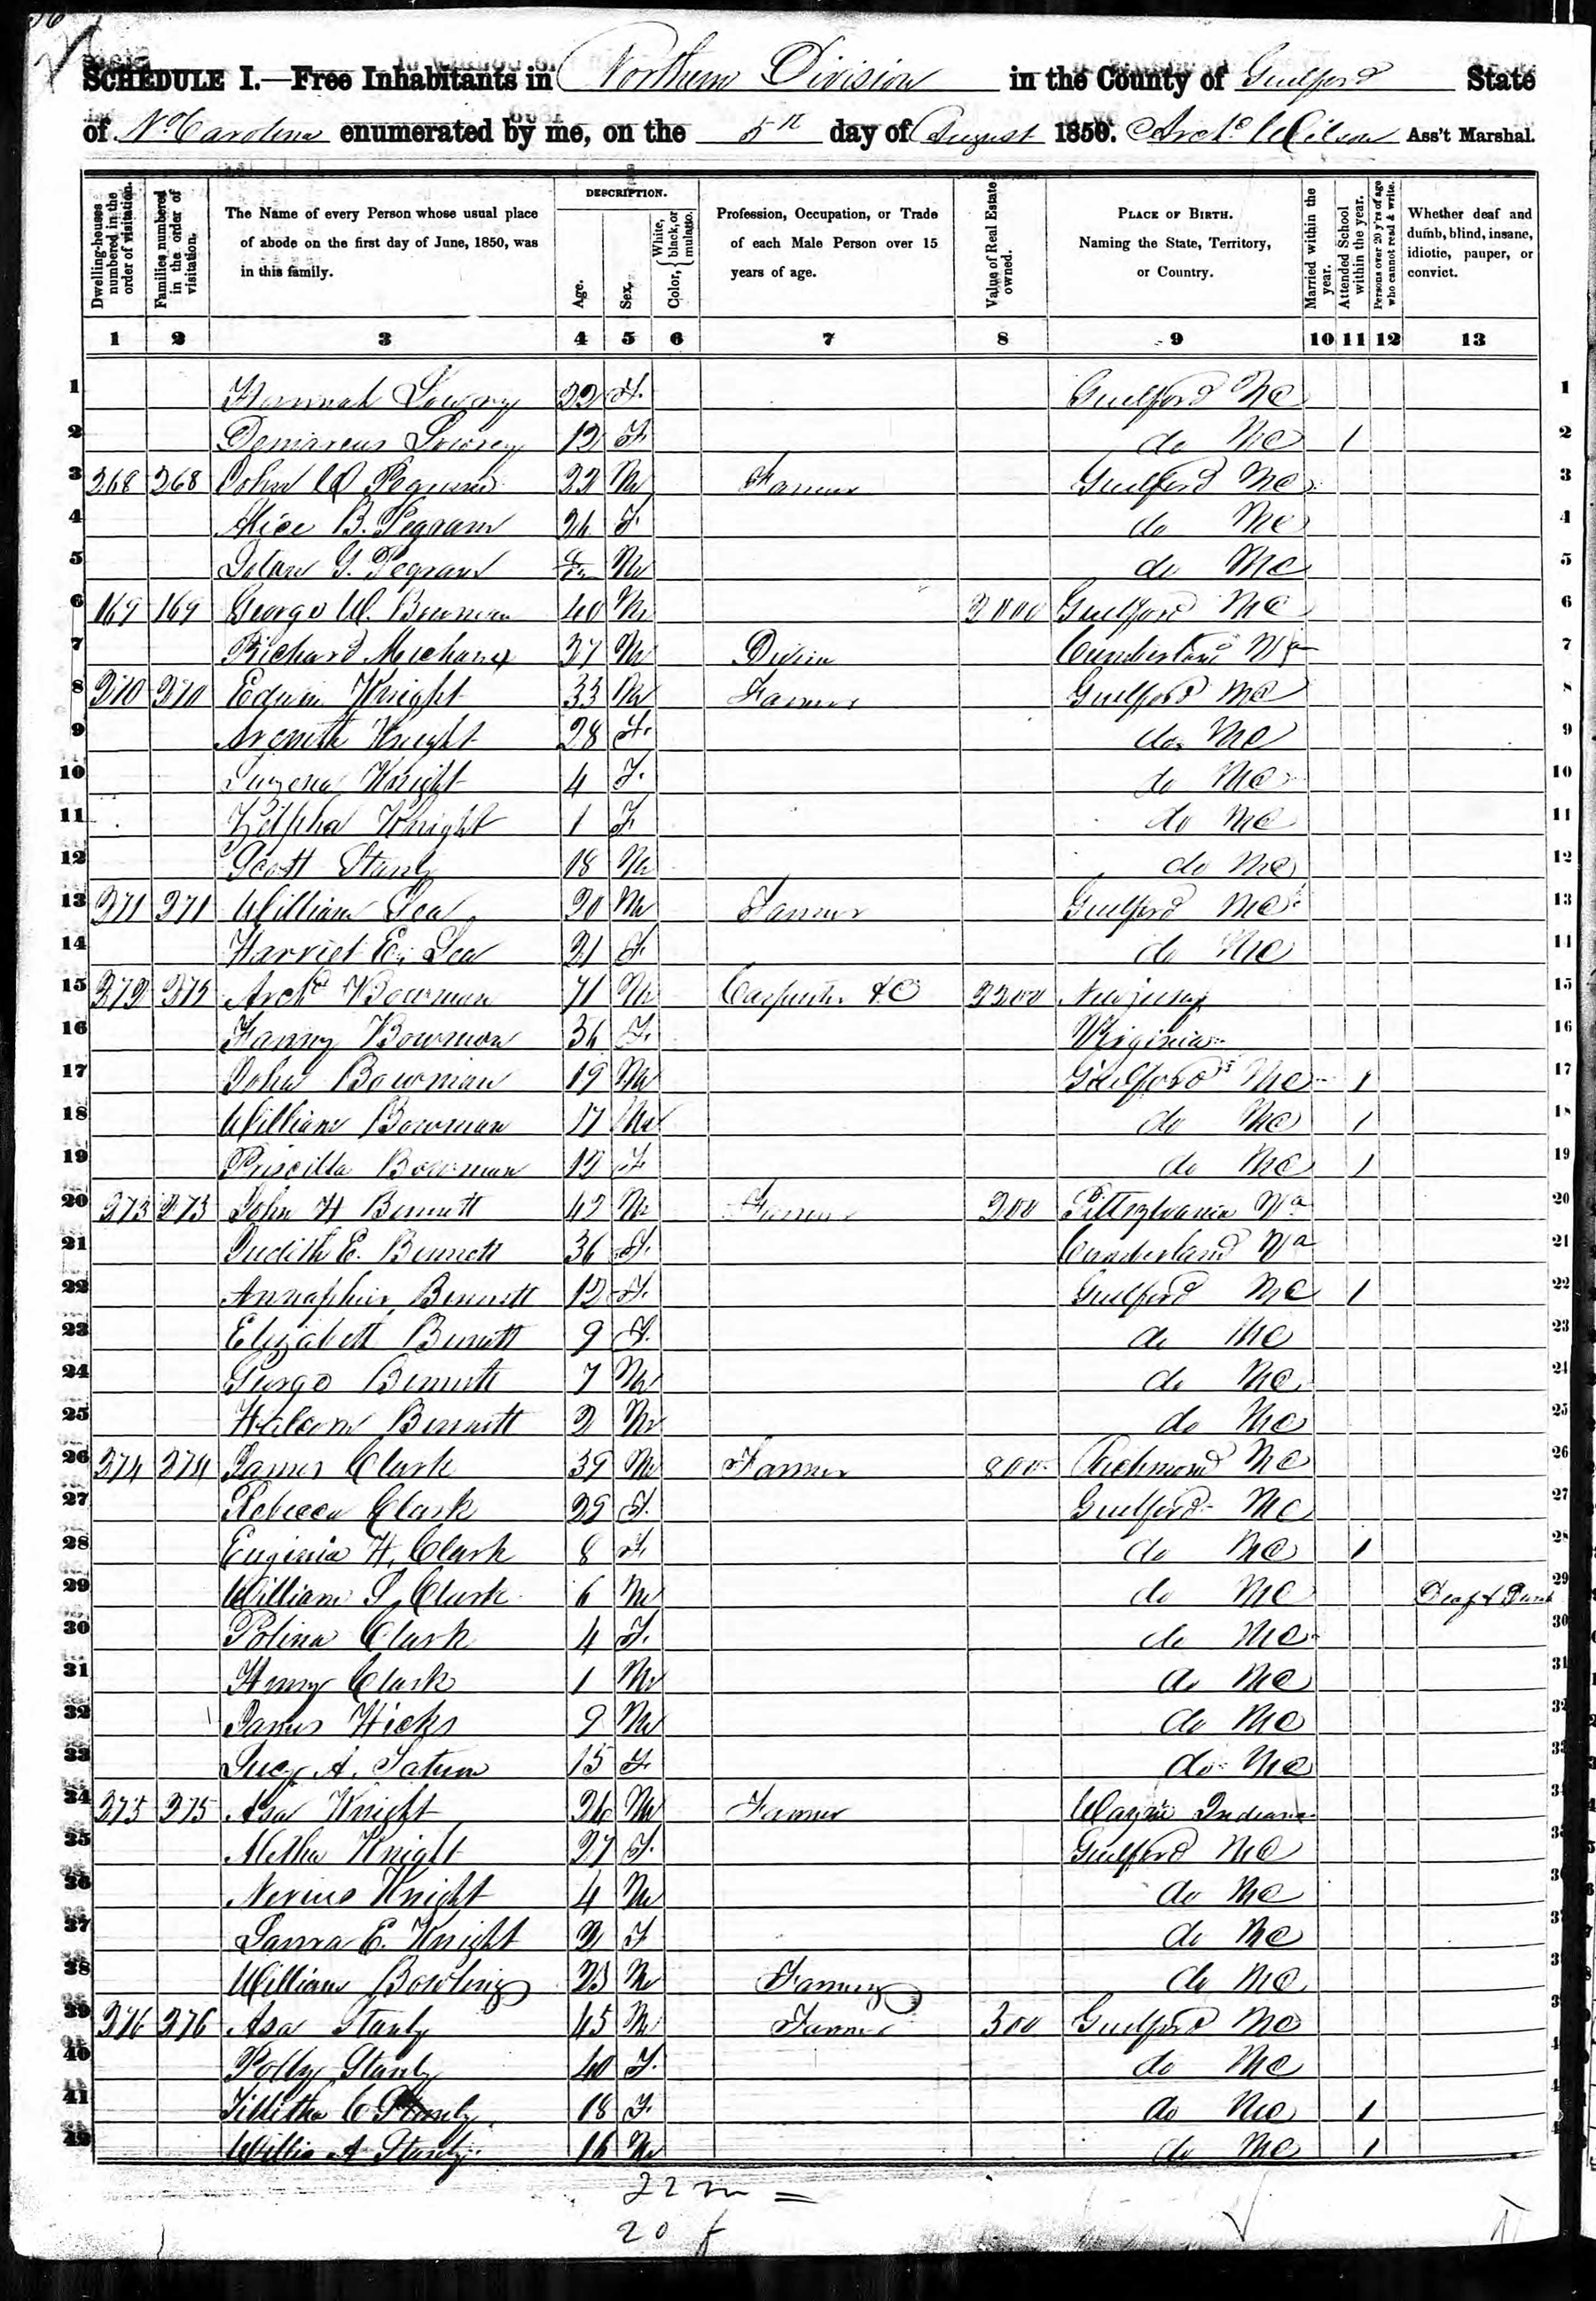 SCHEDULE I.—Free Inhabitants in Northern Division in the County of Guilford State
of No Carolina enumerated by me, on the 5th day of August 1850. Archd Wilson Ass't Marshal.
Dwelling-houses numbered in the order of visitation.
Families numbered in the order of visitation.
The Name of every Person whose usual place of abode on the first day of June, 1850, was in this family.
DESCRIPTION.
Age.
Sex.
Color, { White, black, or mulatto.
Profession, Occupation, or Trade of each Male Person over 15 years of age.
Value of Real Estate owned.
PLACE OF BIRTH. Naming the State, Territory, or Country.
Married within the year.
Attended School within the year.
Persons over 20 y'rs of age who cannot read & write.
Whether deaf and dumb, blind, insane, idiotic, pauper, or convict.
1 2 3 4 5 6 7 8 9 10 11 12 13
1 Hannah Lowry 22 F. Guilford NC 1
2 Lowrey 12 F. do NC 1 2
3 268 268 John W Pegram 22 M Farmer Guilford NC 3
4 Alice B. Pegram 26 F do NC 4
5 G. Pegram M do NC 5
6 169 169 George W. Bowman 40 M 2000 Guilford NC 6
7 Richard 37 M Cumberland Va 7
8 270 270 Edwin Knight 33 M Farmer Guilford NC 8
9 Knight 28 F. do. NC 9
10 Knight 4 F. do NC 10
11 Zilpha Knight 1 F do NC 11
12 Scott Stanly 18 M do NC 12
13 271 271 William Lea 20 M Farmer Guilford NC 13
14 Harriet E. Lea 21 F. do NC 14
15 272 272 Archd Bowman 71 M Carpenter &C 2200 New jersey 15
16 Fanny Bowman 36 F. Virginia 16
17 John Bowman 19 M Guilford NC 1 17
18 William Bowman 17 M do NC 1 18
19 Priscilla Bowman 12 F. do NC 1 19
20 273 273 John H Bennett 42 M Farmer 200 Pittsylvania Va 20
21 Judith E. Bennett 36 F. Cumberland Va 21
22 Bennett 12 F. Guilford NC 1 22
23 Elizabeth Bennett 9 F. do NC 23
24 George Bennett 7 M do NC 24
25 Bennett 2 M do NC 25
26 274 274 James Clark 39 M Farmer 800 Richmond NC 26
27 Rebecca Clark 29 F. Guilford NC 27
28 Eugenia H. Clark 8 F. do NC 1 28
29 William S. Clark 6 M do NC Deaf & Dumb 29
30 Polina Clark 4 F. do NC 30
31 Henry Clark 1 M do NC 31
32 James Hicks 9 M do NC 32
33 Lucy A. Tatum 15 F do NC 33
34 275 275 Asa Knight 26 M Farmer Wayne Indiana
35 Knight 27 F. Guilford NC
36 Knight 4 M do NC
37 Laura E. Knight 2 F do NC
38 William Bowling 23 M Farming do NC
39 276 276 Asa Stanly 45 M Farmer 300 Guilford NC
40 Polly Stanly 40 F. do NC
41 Tilitha C Stanly 18 F. do NC 1
42 Willis A Stanly 16 M do NC 1
22 m =
20 f